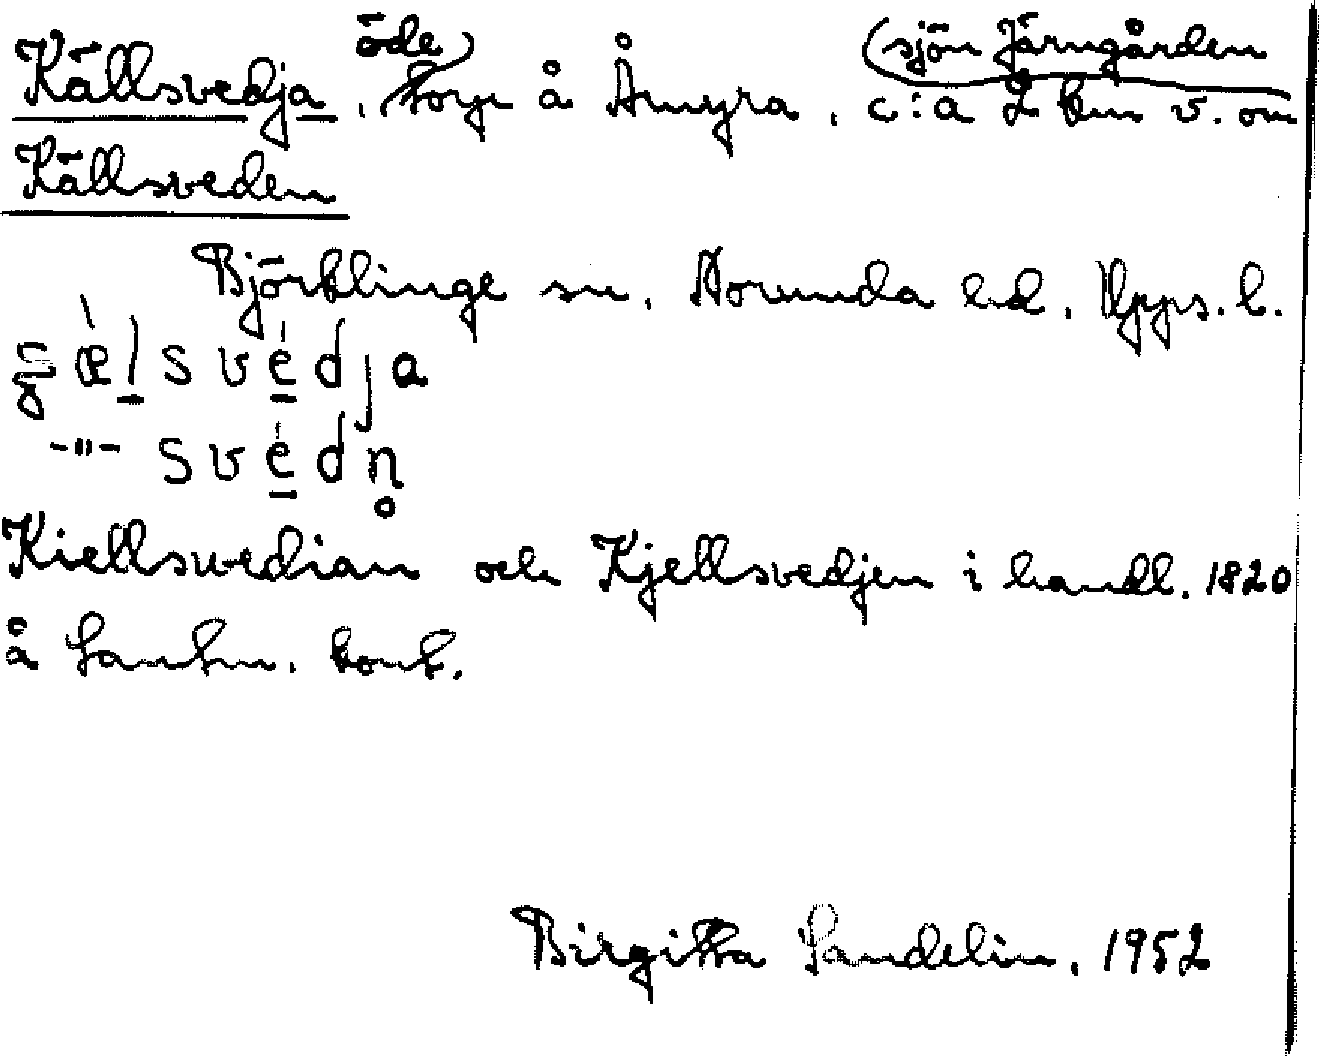 Källsvedja, öde torp å Åmyra, c:a 2 km v. om (sjön Järngården
Källsveden
Björklinge sn, Norunda hd, Upps. l.
svedja
-"- svedn̥
Kiellswedian och Kjellsvedjen i handl. 1820
å Lantm. kont.
Birgitta Sandelin, 1952